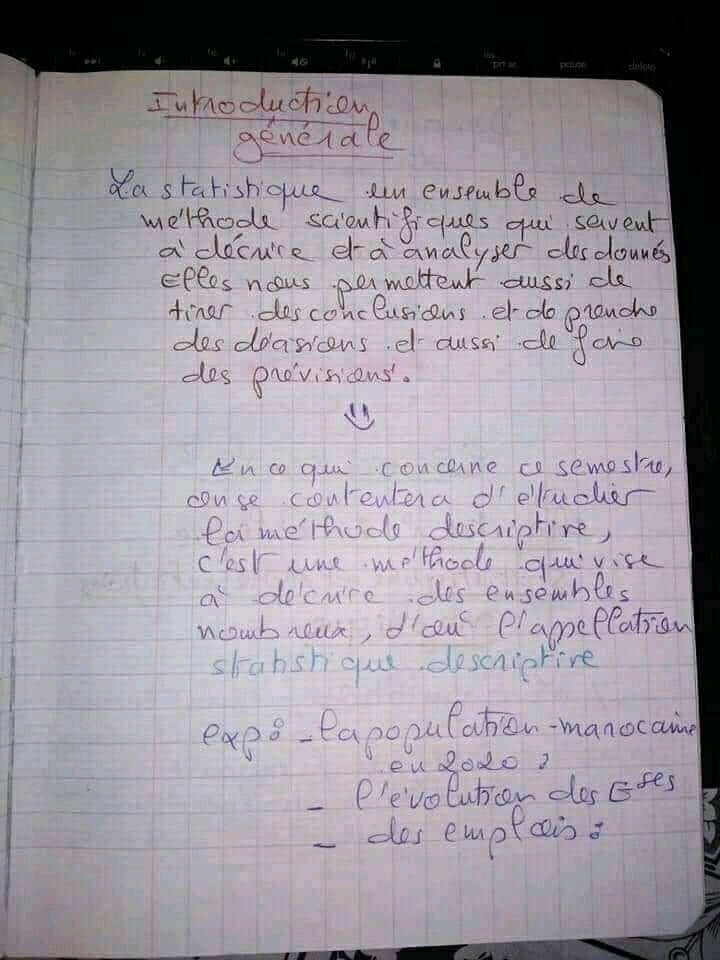 Introduction
générale
La statistique un ensemble de
méthode scientifiques qui servent
à décrire et à analyser des donnés
Elles nous permettent aussi de
tirer des conclusions et de prendre
des décisions et aussi de faire
des prévisions.
En ce qui concerne ce semestre,
on se contentera d'étudier
la méthode descriptive,
c'est une méthode qui vise
à décrire des ensembles
nombreux, d'où l'appellation
statistique descriptive
exp: - la population marocaine
en 2020 ?
- l'évolution des Eses
- des emplois :